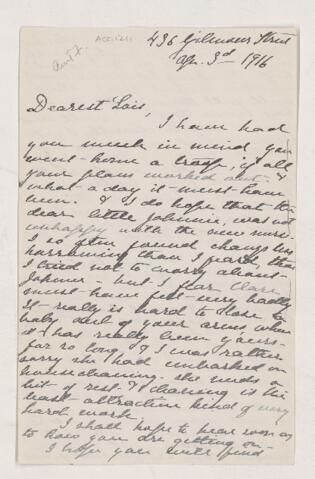 436 Gilmour Street
Ap. 3rd 1916
Dearest Lois,
I have had
you much in mind you
went home a troop, if all
your plans worked out &
what a day it must have
been. & I do hope that the
dear little Johnnie, was not
unhappy with the new nurse.
I so often found changes less
harrowing than I feared, that
I tried not to worry about
Johnnie - but I fear Clare
must have felt very badly
It really is hard to lose a
baby out of your arms, when
it has really been yours
for so long & I was rather
sorry she had embarked on
housecleaning. she needs a
bit of rest & cleaning is the
least attractive kind of very
hard work.
I shall hope to hear soon as
to how you are getting on.
I hope you will find